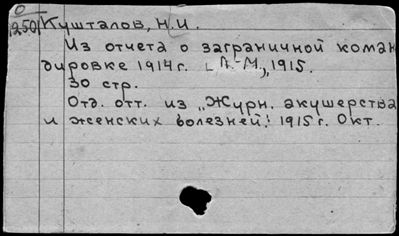 О
1250 Кушталов, Н.И.
Из отчета о заграничной коман
дировке 1914 г. [А.-М., 1915.
30 стр.
Отд. отт. из „Журн. акушерства
и женских болезней." 1915 г. Окт.